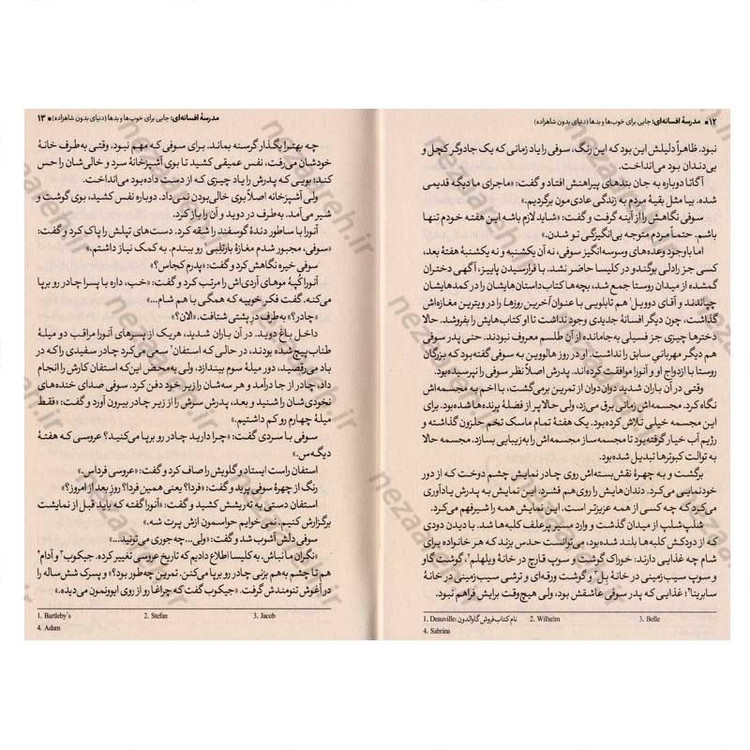 ۱۲ ▪ مدرسهٔ افسانه‌ای: جایی برای خوب‌ها و بدها (دنیای بدون شاهزاده)
نبود. ظاهراً دلیلش این بود که این رنگ، سوفی را یاد زمانی که یک جادوگر کچل و
بی‌دندان بود می‌انداخت.
آگاتا دوباره به جان بندهای پیراهنش افتاد و گفت: «ماجرای ما دیگه قدیمی
شده. بیا مثل بقیهٔ مردم به زندگی عادی‌مون برگردیم.»
سوفی نگاهش را از آینه گرفت و گفت: «شاید لازم باشه این هفته خودم تنها
باشم. حتماً مردم متوجه بی‌انگیزگی تو شدن.»
اما با وجود وعده‌های وسوسه‌انگیز سوفی، نه آن یکشنبه و نه یکشنبهٔ هفتهٔ بعد،
کسی جز رادلی بوگندو در کلیسا حاضر نشد. با فرارسیدن پاییز، آگهی دختران
گمشده از میدان روستا جمع شد، بچه‌ها کتاب داستان‌هایشان را در کمدهایشان
چپاندند و آقای دوویل¹ هم تابلویی با عنوان آخرین روزها را در ویترین مغازه‌اش
گذاشت، چون دیگر افسانهٔ جدیدی وجود نداشت تا او کتاب‌هایش را بفروشد. حالا
دخترها چیزی جز فسیلی به‌جامانده از آن طلسم معروف نبودند. حتی پدر سوفی
هم دیگر مهربانی سابق را نداشت. او در روز هالووین به سوفی گفته بود که بزرگان
روستا با ازدواج او و آنورا موافقت کرده‌اند. پدرش اصلاً نظر سوفی را نپرسیده بود.
وقتی در آن باران شدید دوان‌دوان از تمرین برمی‌گشت، با اخم به مجسمه‌اش
نگاه کرد. مجسمه‌اش زمانی برق می‌زد، ولی حالا پر از فضلهٔ پرنده‌ها شده بود. برای
این مجسمه خیلی تلاش کرده بود. یک هفتهٔ تمام ماسک تخم حلزون گذاشته و
رژیم آب خیار گرفته بود تا مجسمه‌ساز مجسمه‌اش را به‌زیبایی بسازد. مجسمه حالا
به توالت کبوترها تبدیل شده بود.
برگشت و به چهرهٔ نقش‌بسته‌اش روی چادر نمایش چشم دوخت که از دور
خودنمایی می‌کرد. دندان‌هایش را روی‌هم فشرد. این نمایش به پدرش یادآوری
می‌کرد که چه کسی از همه عزیزتر است. این نمایش همه را شیرفهم می‌کرد.
شلپ‌شلپ از میدان گذشت و وارد مسیر پرعلف کلبه‌ها شد. با دیدن دودی
که از دودکش کلبه‌ها بلند شده بود، می‌توانست حدس بزند که هر خانواده برای
شام چه غذایی دارند: خوراک گوشت و سوپ قارچ در خانهٔ ویلهلم²، گوشت گاو
و سوپ سیب‌زمینی در خانهٔ بل³ و گوشت ورقه‌ای و ترشی سیب‌زمینی در خانهٔ
سابرینا⁴؛ غذایی که پدر سوفی عاشقش بود، ولی هیچ‌وقت برایش فراهم نبود.
1. Deauville: نام کتاب‌فروش گاوالدون 2. Wilhelm 3. Belle
4. Sabrina
مدرسهٔ افسانه‌ای: جایی برای خوب‌ها و بدها (دنیای بدون شاهزاده) ▪ ۱۳
چه بهتر! بگذار گرسنه بماند. برای سوفی که مهم نبود. وقتی به‌طرف خانهٔ
خودشان می‌رفت، نفس عمیقی کشید تا بوی آشپزخانهٔ سرد و خالی‌شان را حس
کند؛ بویی که پدرش را یاد چیزی که از دست داده بود می‌انداخت.
ولی آشپزخانه اصلاً بوی خالی‌بودن نمی‌داد. دوباره نفس کشید، بوی گوشت و
شیر می‌آمد. به‌طرف در دوید و آن را باز کرد.
آنورا با ساطور دندهٔ گوسفند را شقه کرد. دست‌های تپلش را پاک کرد و گفت:
«سوفی، مجبور شدم مغازهٔ بارتلبی¹ رو ببندم. به کمک نیاز داشتم.»
سوفی خیره نگاهش کرد و گفت: «پدرم کجاس؟»
آنورا کپهٔ موهای آردی‌اش را مرتب کرد و گفت: «خب، داره با پسرا چادر رو برپا
می‌کنه. گفت فکر خوبیه که همگی با هم شام...»
«چادر؟» به‌طرف در پشتی شتافت. «الان؟»
داخل باغ دوید. در آن باران شدید، هریک از پسرهای آنورا مراقب دو میلهٔ
طناب‌پیچ شده بودند، در حالی که استفان² سعی می‌کرد چادر سفیدی را که در
باد می‌رقصید، دور میلهٔ سوم بیندازد، ولی به‌محض این‌که استفان کارش را انجام
داد، چادر از جا درآمد و هر سه‌شان را زیر خود دفن کرد. سوفی صدای خنده‌های
نخودی‌شان را شنید و بعد، پدرش سرش را از زیر چادر بیرون آورد و گفت: «فقط
میلهٔ چهارم رو کم داشتیم.»
سوفی با سردی گفت: «چرا دارید چادر رو برپا می‌کنید؟ عروسی که هفتهٔ
دیگه‌س.»
استفان راست ایستاد و گلویش را صاف کرد و گفت: «عروسی فرداس.»
رنگ از چهرهٔ سوفی پرید و گفت: «فردا؟ یعنی همین فردا؟ روز بعد از امروز؟»
استفان دستی به ته‌ریشش کشید و گفت: «آنورا گفته که باید قبل از نمایشت
برگزارش کنیم. نمی‌خوایم حواسمون ازش پرت شه.»
سوفی دلش آشوب شد و گفت: «ولی... چه‌جوری می‌تونید...»
«نگران ما نباش. به کلیسا اطلاع دادیم که تاریخ عروسی تغییر کرده. جیکوب³ و آدام⁴
هم تا چشم به‌هم بزنی چادر رو برپا می‌کنن. تمرین چه‌طور بود؟» و پسرک شش‌ساله را
در آغوش تنومندش گرفت. «جیکوب گفت که چراغا رو از روی ایوونمون می‌دیده.»
1. Bartleby's 2. Stefan 3. Jacob
4. Adam
nezaareh.ir